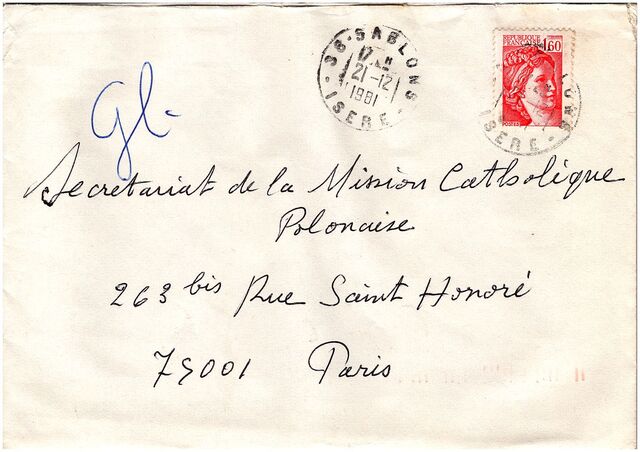 38-SABLONS
17 H
21-12
1981
ISERE
REPUBLIQUE
FRANCAISE 1,60
POSTES
ISERE
Gl-
Secretariat de la Mission Catholique
Polonaise
263 bis Rue Saint Honoré
75001 Paris